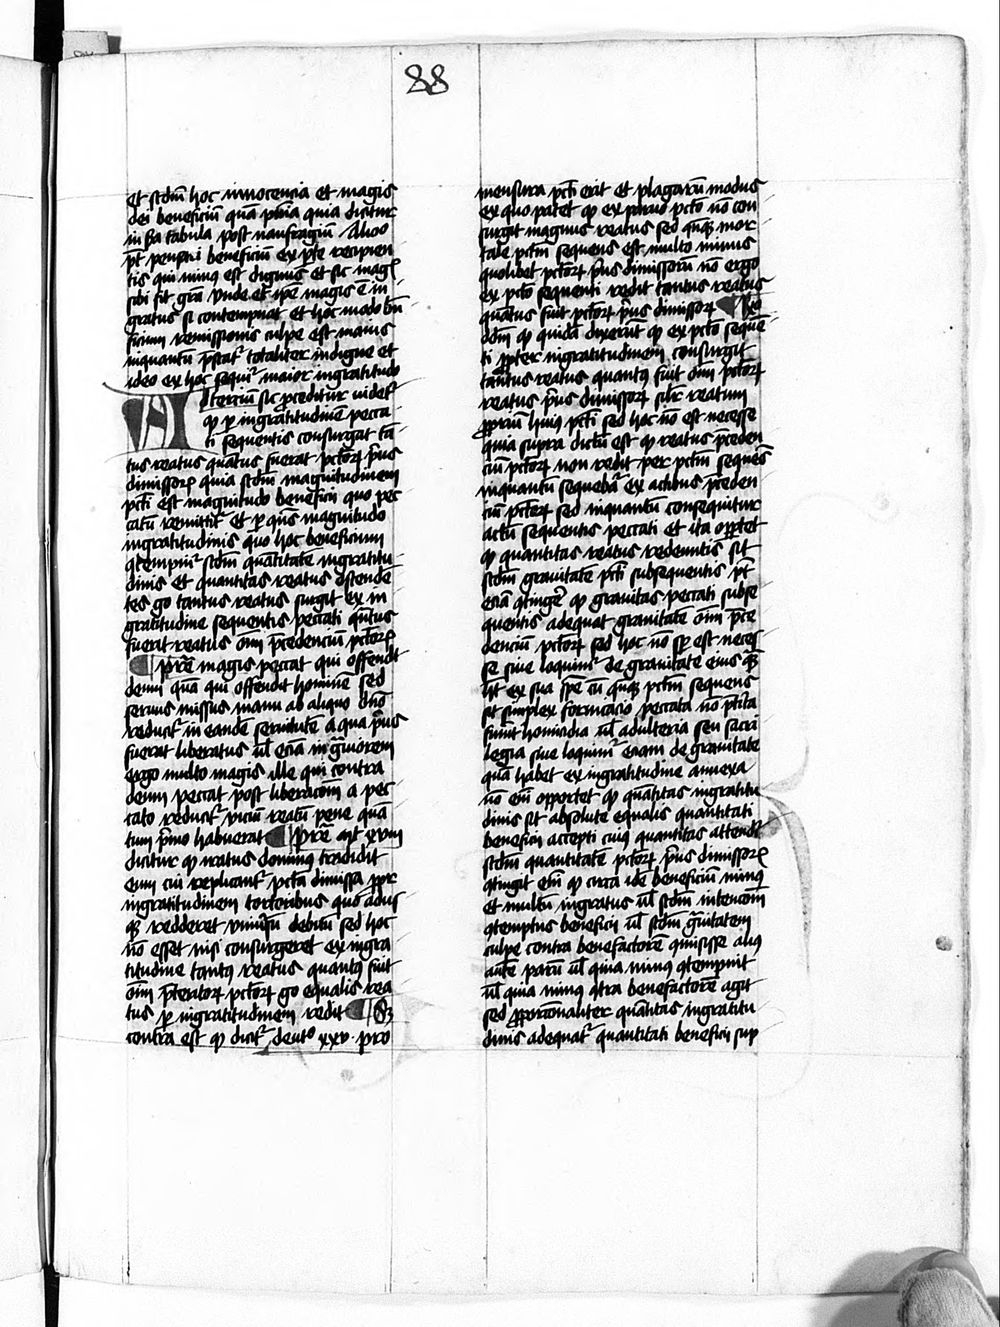 88
et scdm hoc innocencia et magis
dei beneficiu qua pnia quia dicitur
in sa tabula post naufragiu Alio
pt pensari beneficiu ex pte recipien
tis qui minus est dignus et sic magis
sibi fit gra vnde et ipe magis e in
gratus si contempnat et hoc modo bn
ficium remissionis culpe est maius
inquantu pstat totaliter indigne et
ideo ex hoc sequit maior ingratitudo
Ad terciu sic proceditur videt
qp per ingratitudine pecca
ti sequentis consurgat ta
tus reatus quatus fuerat pctor prius
dimissor quia scdm magnitudinem
pcti est magnitudo beneficii quo pec
catu remittit et per qns magnitudo
ingratitudinis quo hoc beneficium
qtempnit scdm quatitate ingratitu
dinis et quantitas reatus ostende
tes go tantus reatus surgit ex in
gratitudine sequentis peccati quntus
fuerit reatus oim precedenciu pctor
pre magis peccat qui offendit
deum qua qui offendit homine sed
seruus missus manu ab aliquo dno
reducit in eande seruitute a qua prius
fuerat liberatus ul ecia in grauiorem
ergo multo magis ille qui contra
deum peccat post liberacom a pec
cato reducit in tm reatu pene qua
tum primo habuerat pre mt xviii
dicitur qp iratus dominus tradidit
eum cui replicant pcta dimissa ppr
ingratitudinem tortoribus quo adus
qz redderet vniuersu debitu sed hoc
no esset nisi consurgeret ex ingra
titudine tantus reatus quantus fuit
oim preteritor pctor go equalis rea
tus per ingratitudinem redit Sz
contra est qp dicit deuto xxv pro
mensura pcti erit et plagaru modus
ex quo patet qp ex paruo pcto no con
surgit magnus reatus sed qnqz mor
tale pctm sequens est multo minus
quolibet pctor prius dimissoru no ergo
ex pcto sequenti redit tantus reatus
quatus fuit pctor prius dimissor
dom qp quida dixerut qp ex pcto seque
ti ppter ingratitudinem consurgit
tantus reatus quantus fuit oim pctor
reatus prius dimissor silr reatum
pprium huius pcti sed hoc no est necesse
quia supra dictu est qp reatus preceden
ciu pctor non redit per pctm sequens
inquantu sequebat ex actibus preceden
ciu pctor sed inquantu consequitur
actu sequentis peccati et ita oportet
qp quantitas reatus redeuntis sit
scdm grauitate pcti subsequentis pt
ecia qtinger qp grauitas peccati subse
quentis adequat grauitate oim prece
denciu pctor sed hoc no semper est neces
se siue loquimur de grauitate eius qua
ht ex sua spe cu qnqz pctm sequens
sit simplex fornicacio peccata no pterita
fuerint homicidia ul adulteria seu sacri
legia siue loquimur eciam de grauitate
qua habet ex ingratitudine annexa
no eni opportet qp quatitas ingratitu
dinis sit absolute equalis quantitati
beneficii accepti cuius quantitas attendit
scdm quantitate pctor prius dimissor
qtingit eni qp circa ide beneficiu unus
est multu ingratus ul scdm intencom
qtemptus beneficii ul scdm grauitatem
culpe contra benefactore qmisse alius
aute paru ul quia minus qtempnit
ul quia minus qtra benefactore agit
sed pporconaliter quatitas ingratitu
dinis adequat quantitati beneficii sup